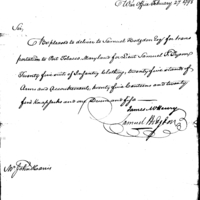 War Office February 27 1798
Sir,
Be pleased to deliver to Samuel Hodgdon Esqr for trans
portation to Port Tobacco Maryland for Lieut Samuel T. Dyson
Twenty five suits of Infantry Clothing, twenty five stands of
Arms and Accoutrements, twenty five Canteens and twenty
five knapsacks and one Drum and fife
James McHenry
Samuel Hodgdon
Mr John Harris